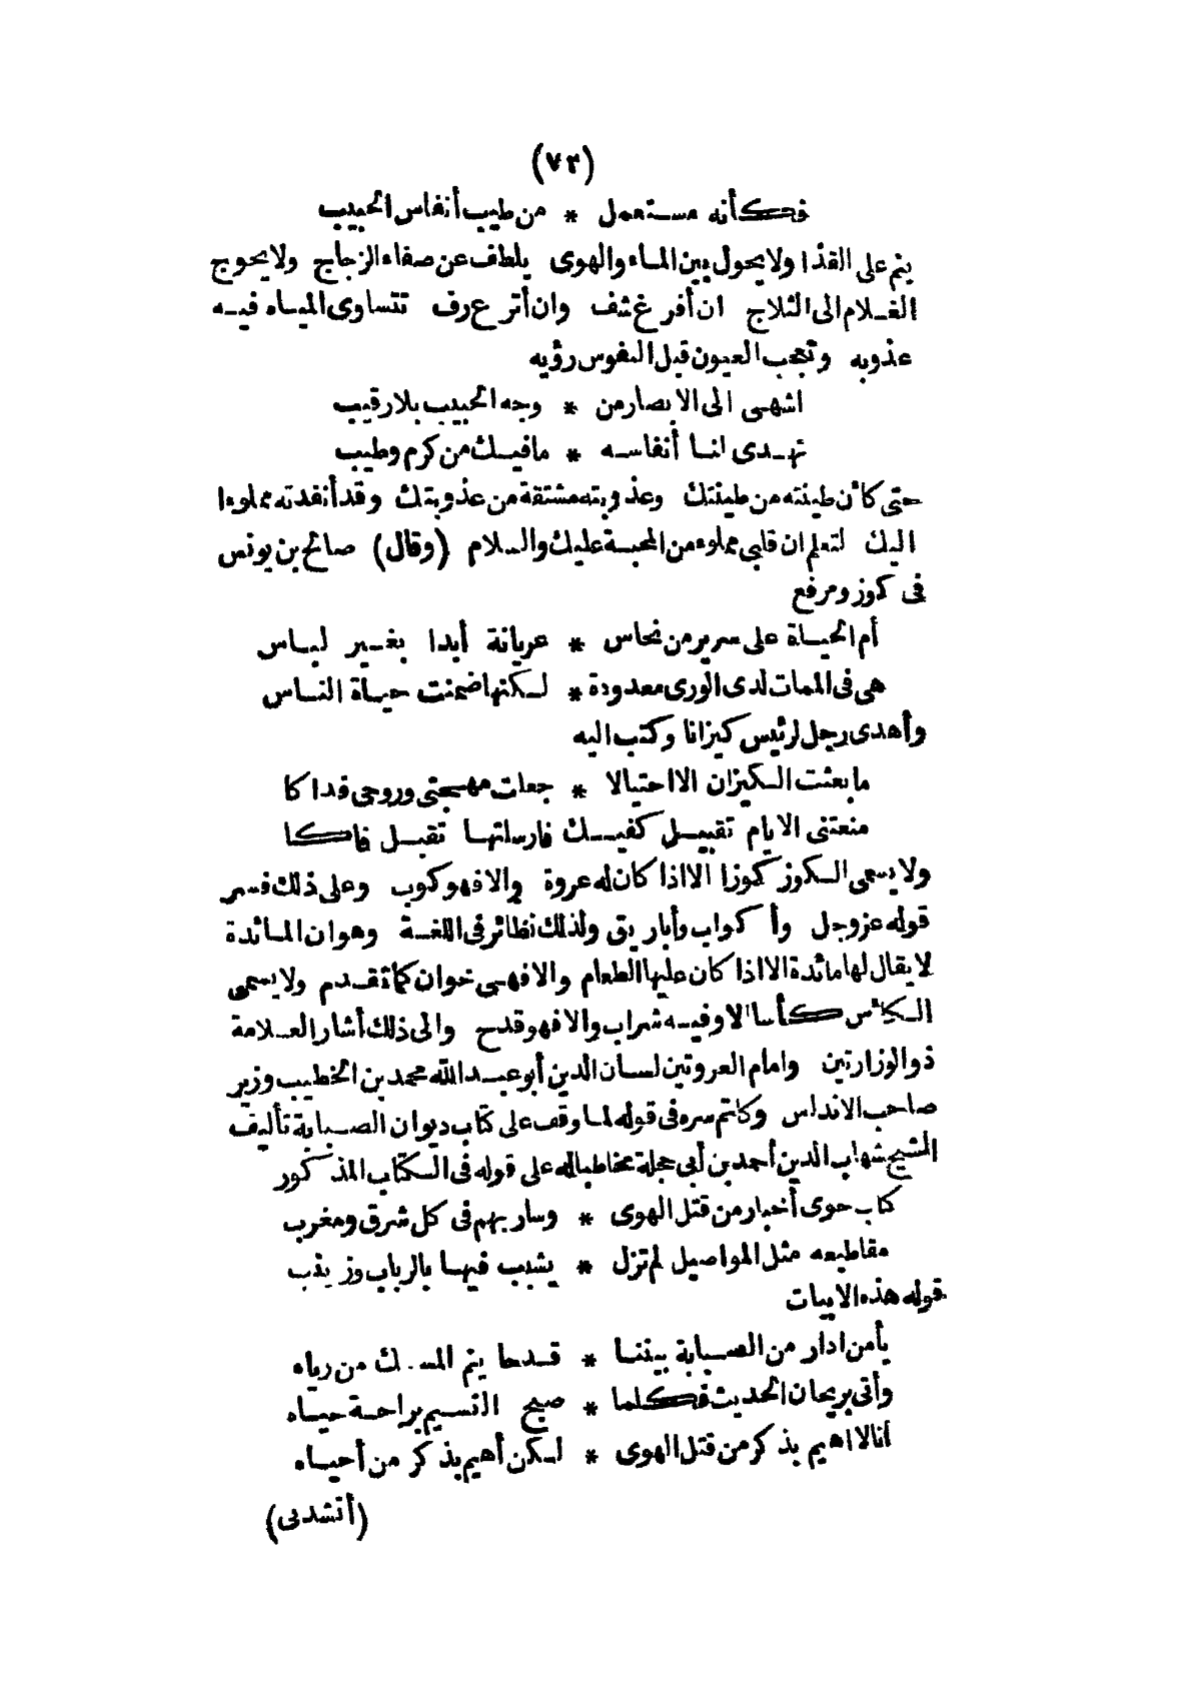 (٧٢)
فكأنه مستعمل * من طيب أنفاس الحبيب
ينم على القذا ولا يحول بين الماء والهوى يلطف عن صفاء الزجاج ولا يحوج
الغلام الى الثلاج ان أفرغ شف وان أترع رف تتساوى المياه فيه
عذوبه وتعجب العيون قبل النفوس رؤيه
اشهى الى الابصار من * وجه الحبيب بلا رقيب
تهدى لنا أنفاسه * ما فيك من كرم وطيب
حتى كأن طينته من طينتك وعذوبته مشتقة من عذوبتك وقد أنفدته مملوءا
اليك لتعلم ان قلبى مملوء من المحبة عليك والسلام (وقال) صالح بن يونس
فى كوز ومرفع
أم الحياة على سرير من نحاس * عريانة أبدا بغير لباس
هى فى الممات لدى الورى معدودة * لكنها ضمنت حياة الناس
وأهدى رجل لرئيس كيزانا وكتب اليه
ما بعثت الكيزان الا احتيالا * جعلت مهجتى وروحى فداكا
منعتنى الايام تقبيل كفيك فارسلتها تقبل فاكا
ولا يسمى الكوز كوزا الا اذا كان له عروة والا فهو كوب وعلى ذلك فسر
قوله عز وجل وأكواب وأباريق ولذلك نظائر فى اللغة وهو ان المائدة
لا يقال لها مائدة الا اذا كان عليها الطعام والا فهى خوان كما تقدم ولا يسمى
الكاس كأسا الا وفيه شراب والا فهو قدح والى ذلك أشار العلامة
ذو الوزارتين وامام العروتين لسان الدين أبو عبد الله محمد بن الخطيب وزير
صاحب الاندلس وكاتم سره فى قوله لما وقف على كتاب ديوان الصبابة تأليف
الشيخ شهاب الدين أحمد بن أبى حجلة مخاطبا له على قوله فى الكتاب المذكور
كتاب حوى أخبار من قتل الهوى * وسار بهم فى كل شرق ومغرب
مقاطيعه مثل المواصيل لم تزل * يشبب فيها بالرباب وزينب
قوله هذه الابيات
يأمن ادار من الصبابة بيننا * قدحا ينم المسك من رياه
وأتى بريحان الحديث فكلما * صبح النسيم براحة حياه
أنا لا اهيم بذكر من قتل الهوى * لكن أهيم بذكر من أحياه
(أنشدنى)